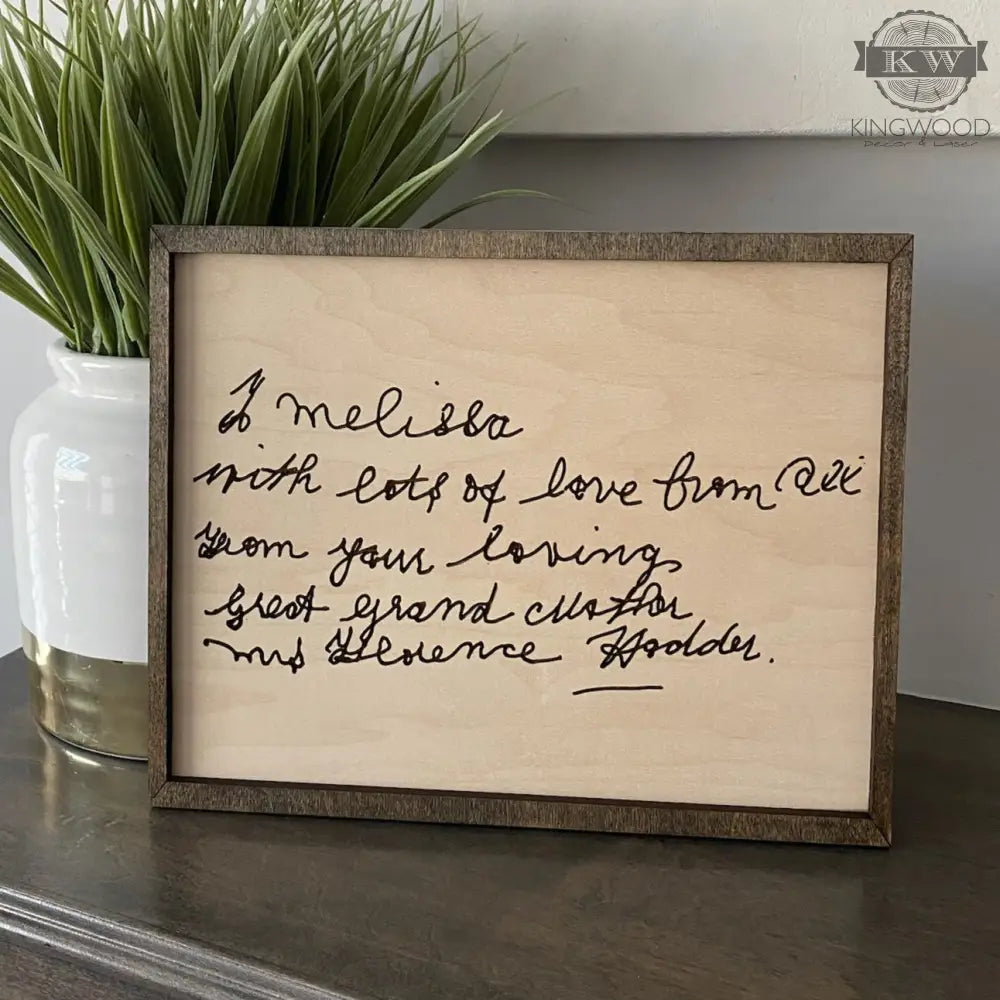 KW
KINGWOOD
Decor & Laser
To melissa
with lots of love from all
From your loving
Great grand Mother
mrs Florence Hodder.